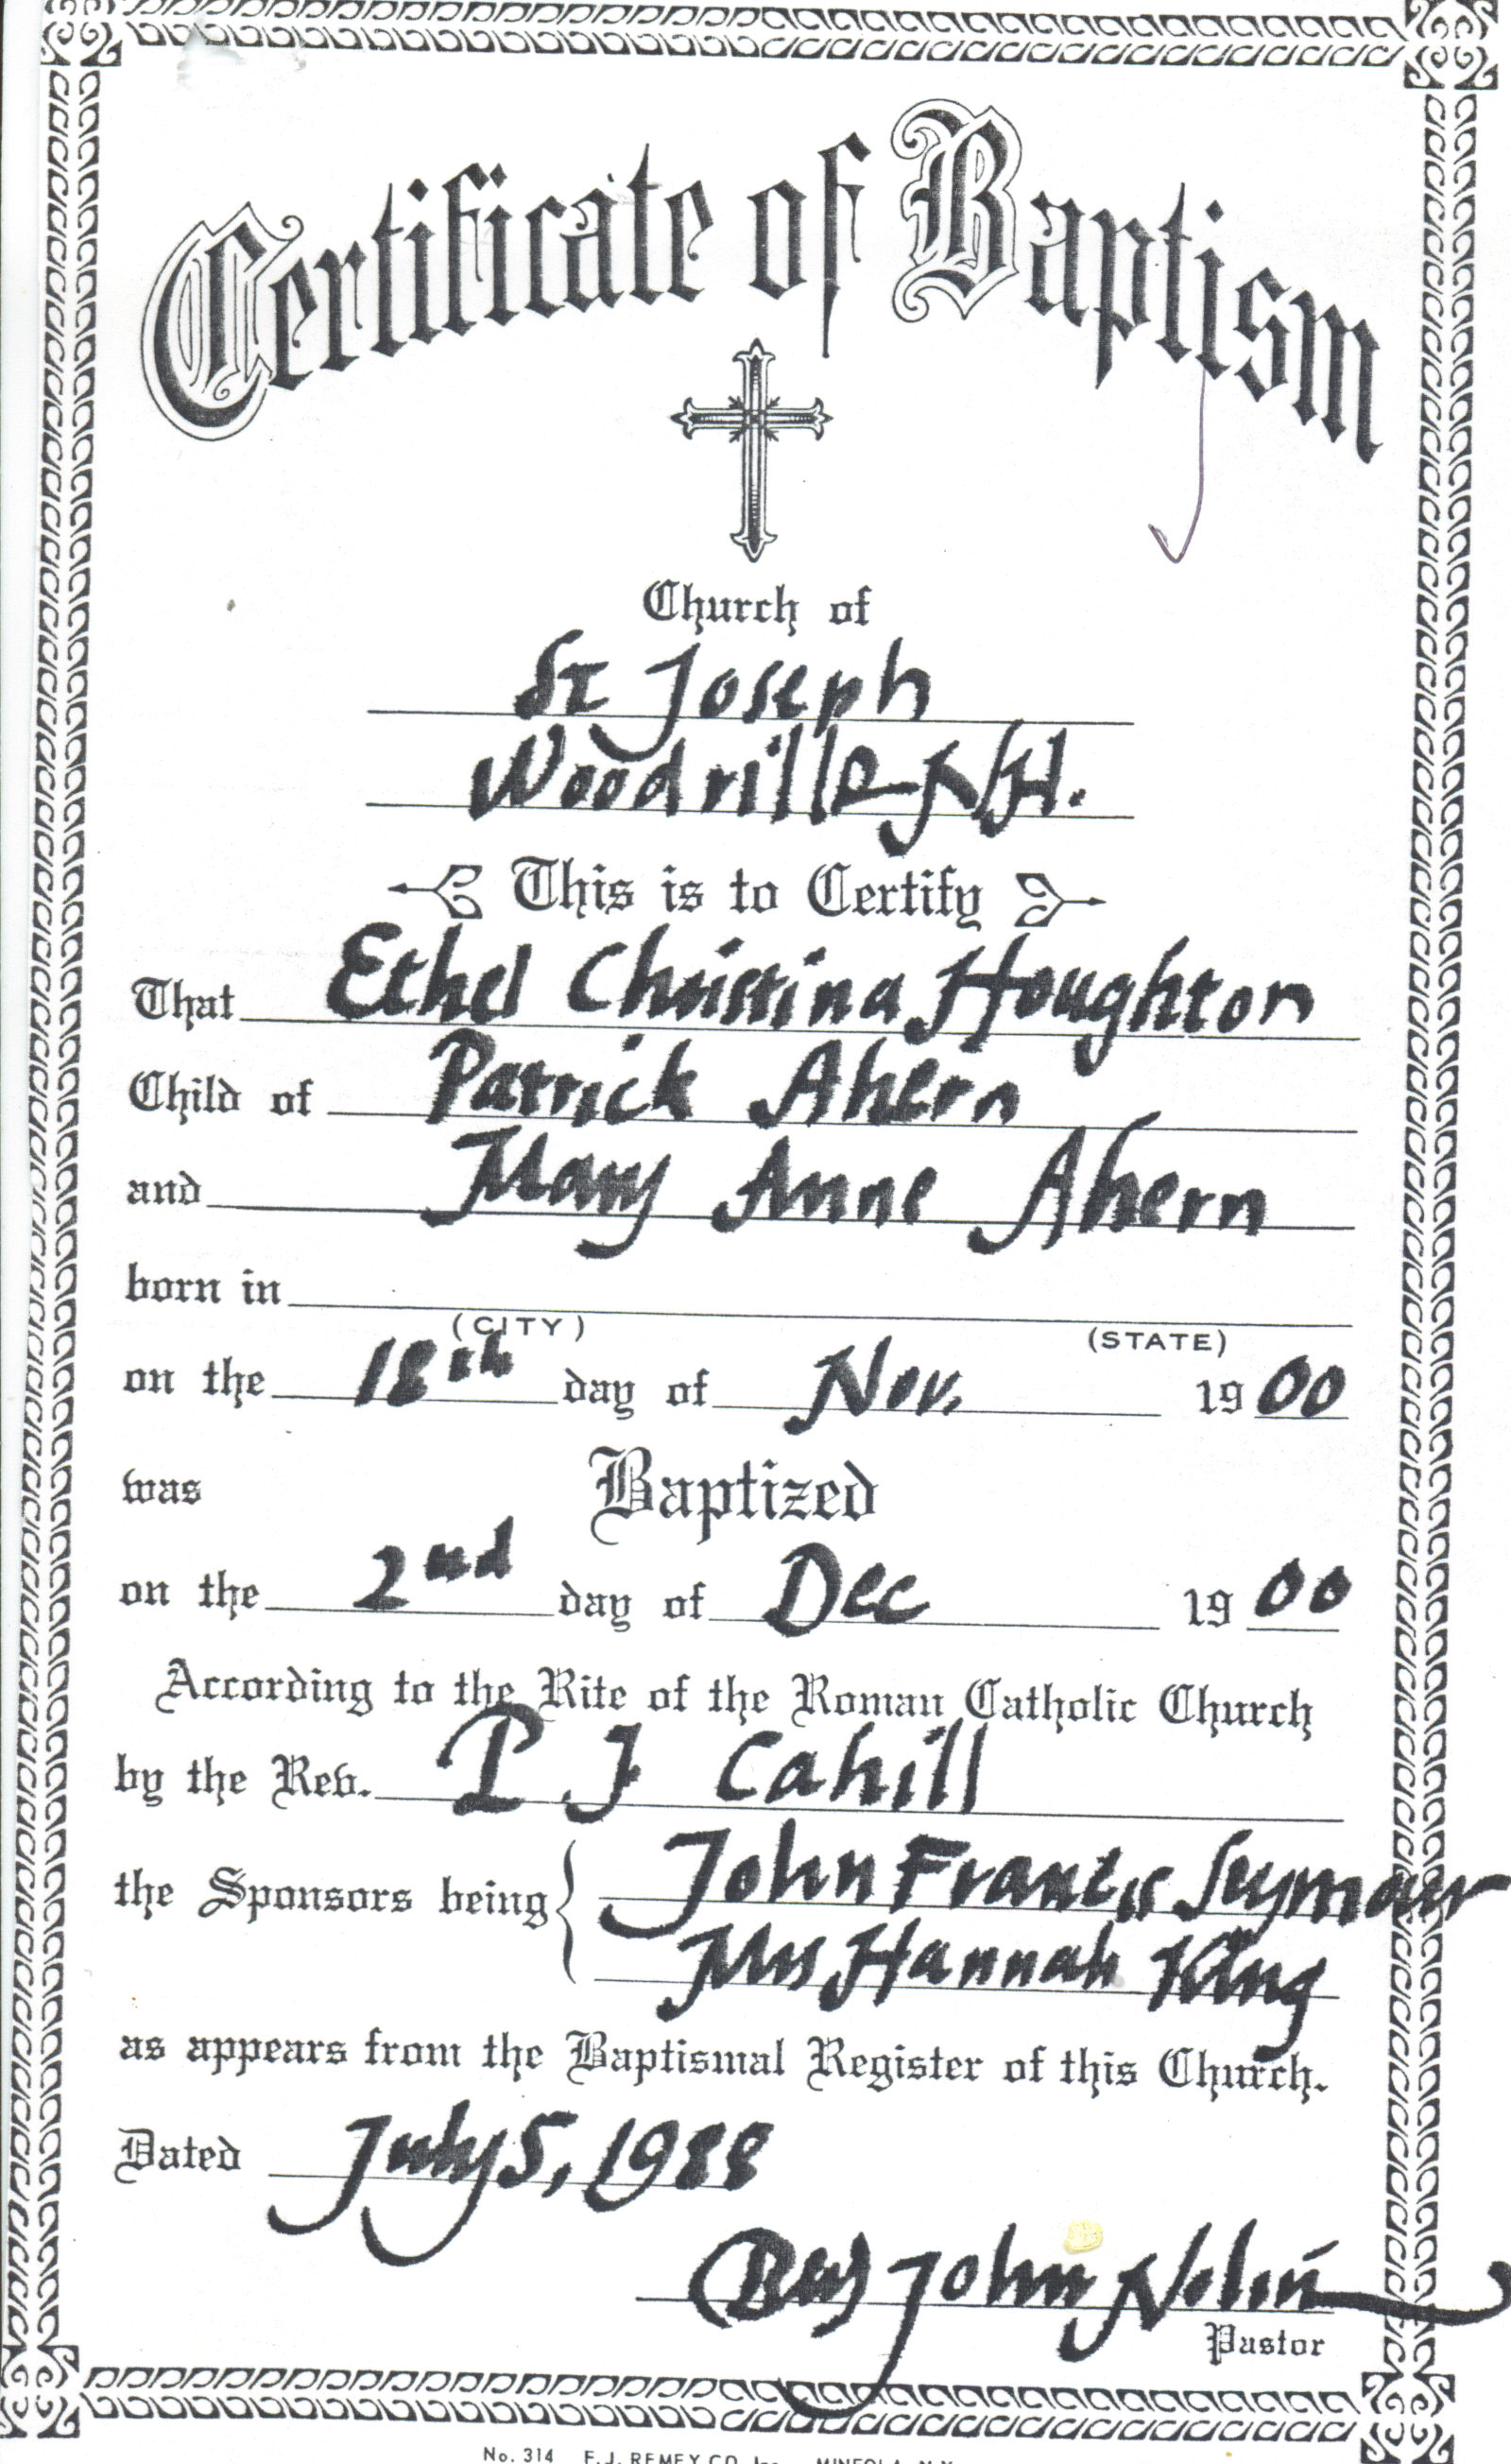 Certificate of Baptism
Church of
St Joseph
Woodville N.H.
This is to Certify
That Ethel Christina Houghton
Child of Patrick Ahern
and Mary Anne Ahern
born in
(CITY) (STATE)
on the 18th day of Nov. 1900
was Baptized
on the 2nd day of Dec 1900
According to the Rite of the Roman Catholic Church
by the Rev. P J Cahill
the Sponsors being { John Francis Seymour
Mrs Hannah King
as appears from the Baptismal Register of this Church.
Dated July 5, 1988
(Rev) John Nolin
Pastor
No. 314 F.J. REMEY CO. Inc. MINEOLA, N.Y.